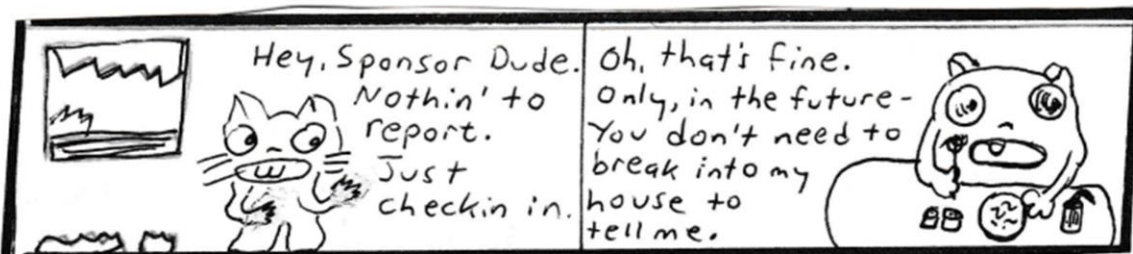 Hey, Sponsor Dude.
Nothin' to
report.
Just
checkin in.
Oh, that's fine.
Only, in the future-
You don't need to
break into my
house to
tell me.